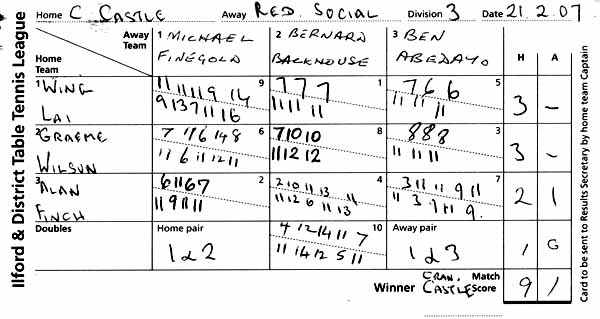 Ilford & District Table Tennis League
Home C. CASTLE Away RED. SOCIAL Division 3 Date 21.2.07
Away Team 1 MICHAEL FINEGOLD 2 BERNARD BACKHOUSE 3 BEN ABEDAYO H A
Home Team
1 WING LAI 9 1 5 3 -
11 11 11 9 14 7 7 7 7 6 6
9 13 7 11 16 11 11 11 11 11 11
2 GRAEME WILSON 6 8 3 3 -
7 11 6 14 8 7 10 10 8 8 8
11 6 11 12 11 11 12 12 11 11 11
3 ALAN FINCH 2 4 7 2 1
6 11 6 7 2 10 11 13 11 3 11 11 9 11
11 9 11 11 11 12 6 11 13 11 3 7 11 9
Doubles Home pair 10 Away pair
1 & 2 4 12 14 11 7 1 & 3 1 0
11 14 12 5 11
Winner CRAN. CASTLE Match Score 9 1
Card to be sent to Results Secretary by home team Captain